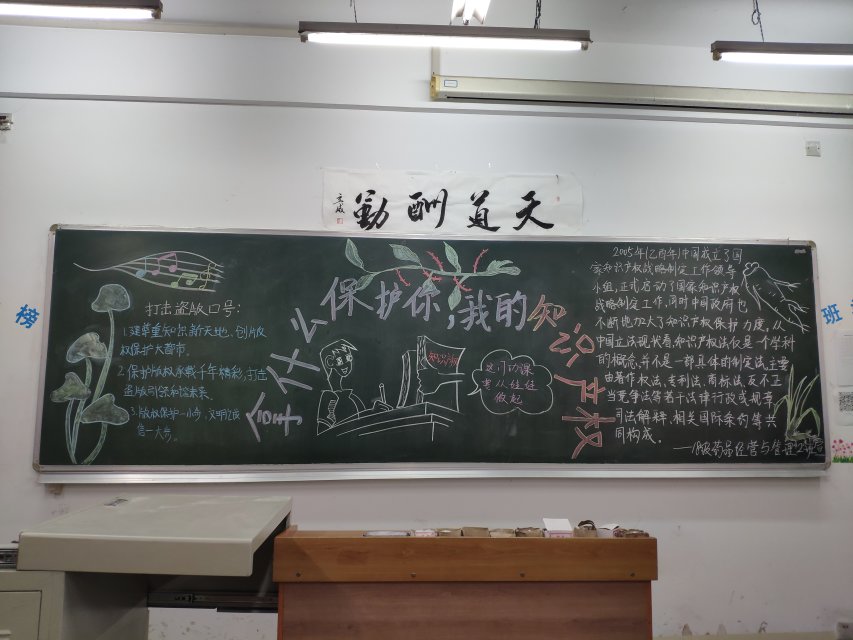 天道酬勤
榜
班
拿什么保护你,我的知识产权
打击盗版口号:
1.建尊重知识新天地,创版
权保护大都市.
2.保护版权承载千年精彩,打击
盗版引领和谐未来.
3.版权保护一小步,文明诚
信一大步.
知识产权
这门功课
要从往往
做起
2005年(乙酉年)中国成立了国
家知识产权战略制定工作领导
小组,正式启动了国家知识产权
战略制定工作,同时中国政府也
不断地加大了知识产权保护力度,从
中国立法现状看知识产权法仅是一个学科
的概念,并不是一部具体的制定法,主要
由著作权法、专利法、商标法、反不正
当竞争法等若干法律行政或规章
司法解释,相关国际条约等共
同构成。